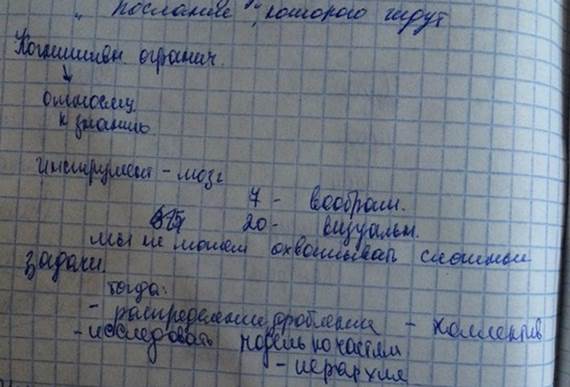 " послание", которого ждут
Когнитивн. огранич.
относящ.
к знанию
инструмент - мозг
7 - воображ.
20 - визуальн.
мы не можем охватывать сложные
задачи.
тогда:
- распределение, дробление - коллектив
- исследовать модель по частям
- иерархия